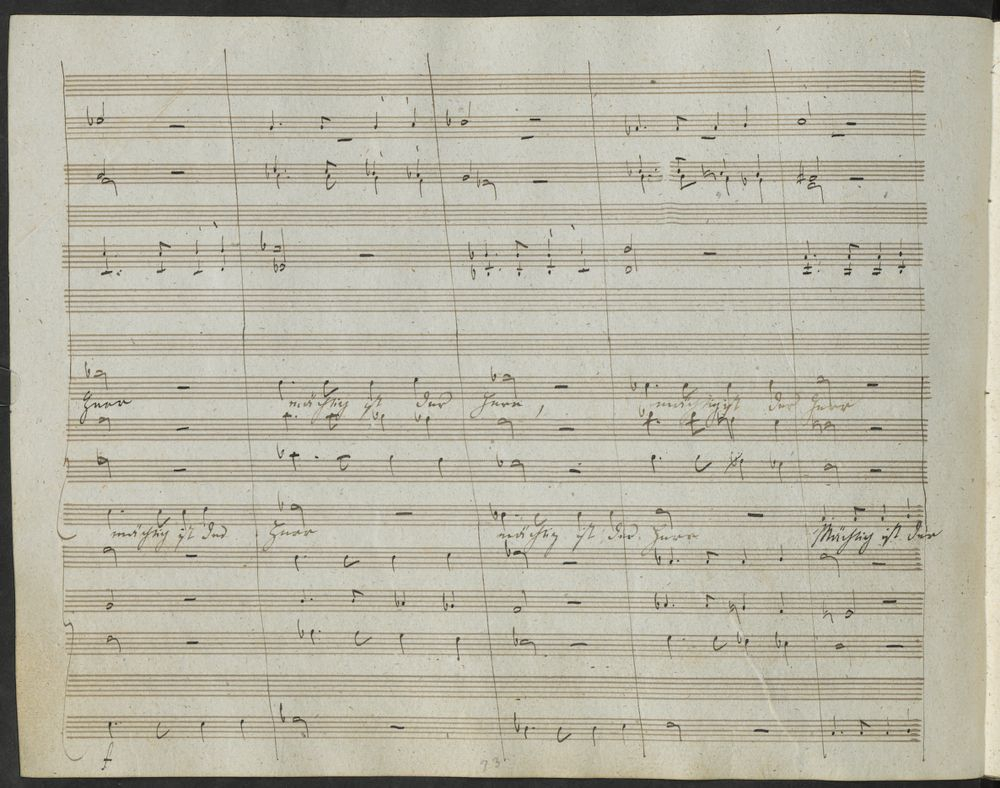 Herr mächtig ist der Herr, mächtig ist der Herr
mächtig ist der Herr mächtig ist der Herr Mächtig ist der
f
93